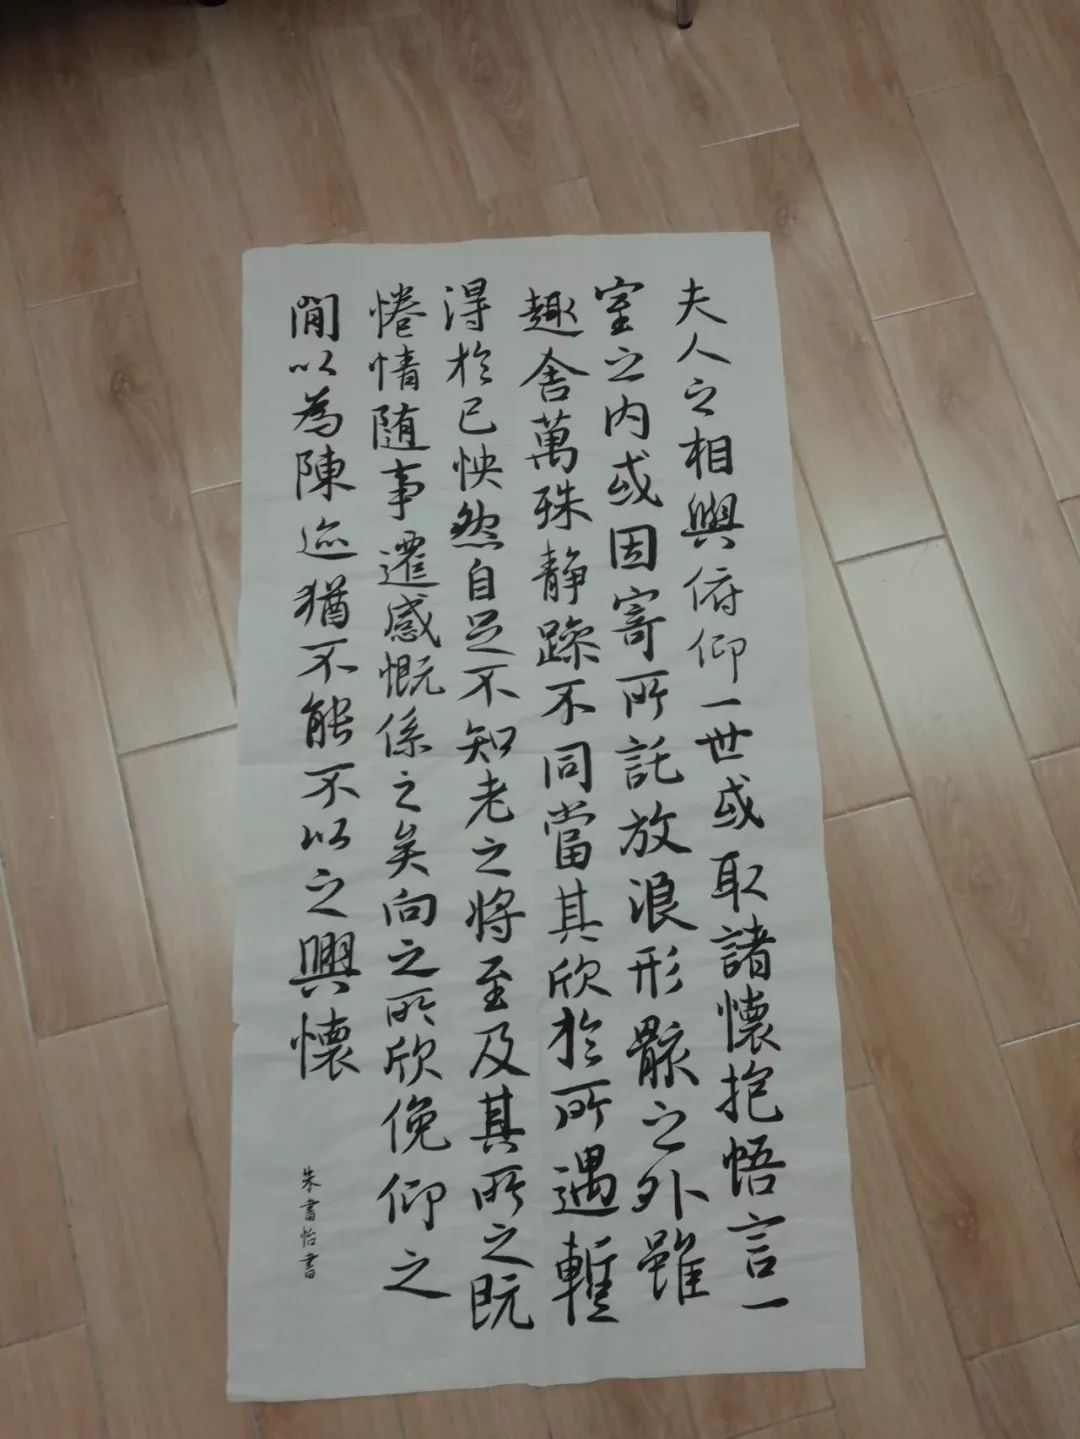 夫人之相與俯仰一世或取諸懷抱悟言一
室之内或因寄所託放浪形骸之外雖
趣舍萬殊静躁不同當其欣於所遇蹔
得於己怏然自足不知老之將至及其所之既
惓情随事遷感慨係之矣向之所欣俛仰之
間以為陳迹猶不能不以之興懷
朱書怡書